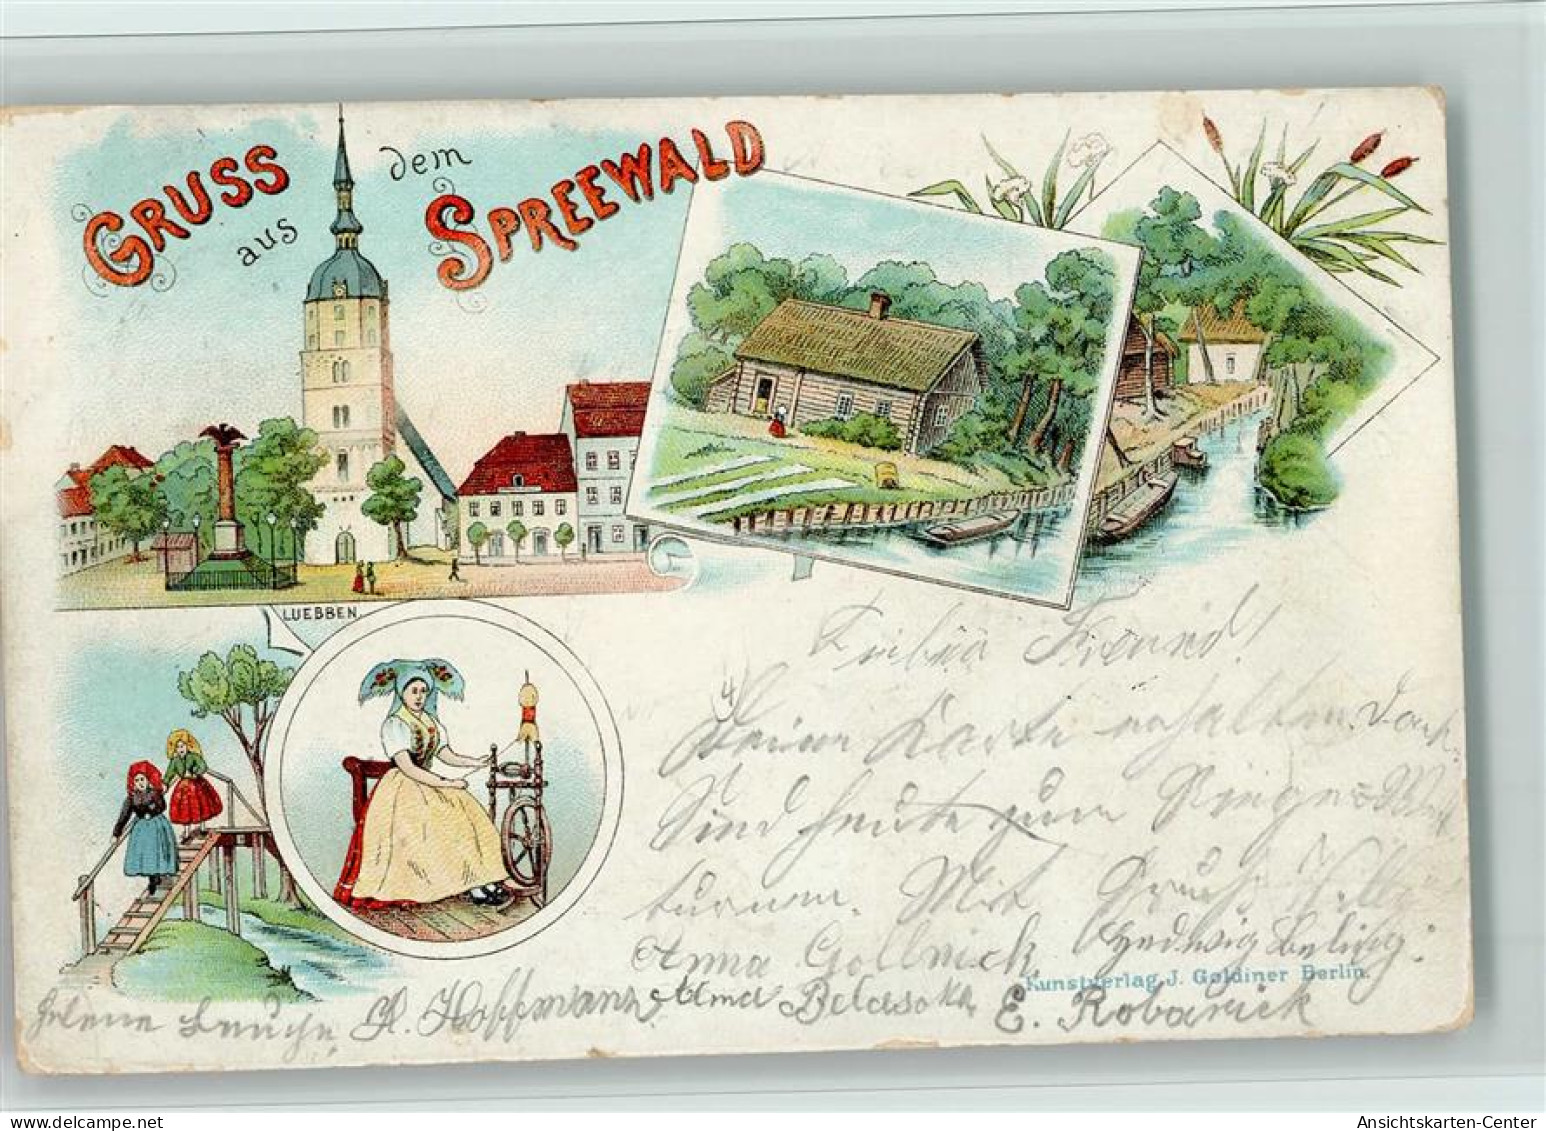 GRUSS
aus
dem
SPREEWALD
LUEBBEN
Freund!
Deine Karte erhalten. Dank.
Sind heute zum
turnen. Mit Gruß Willy
Anna Gollnick Hedwig
Kunstverlag J. Goldiner Berlin.
Helene A. Hoffmann, Alma E. Robarick
www.delcampe.net
Ansichtskarten-Center